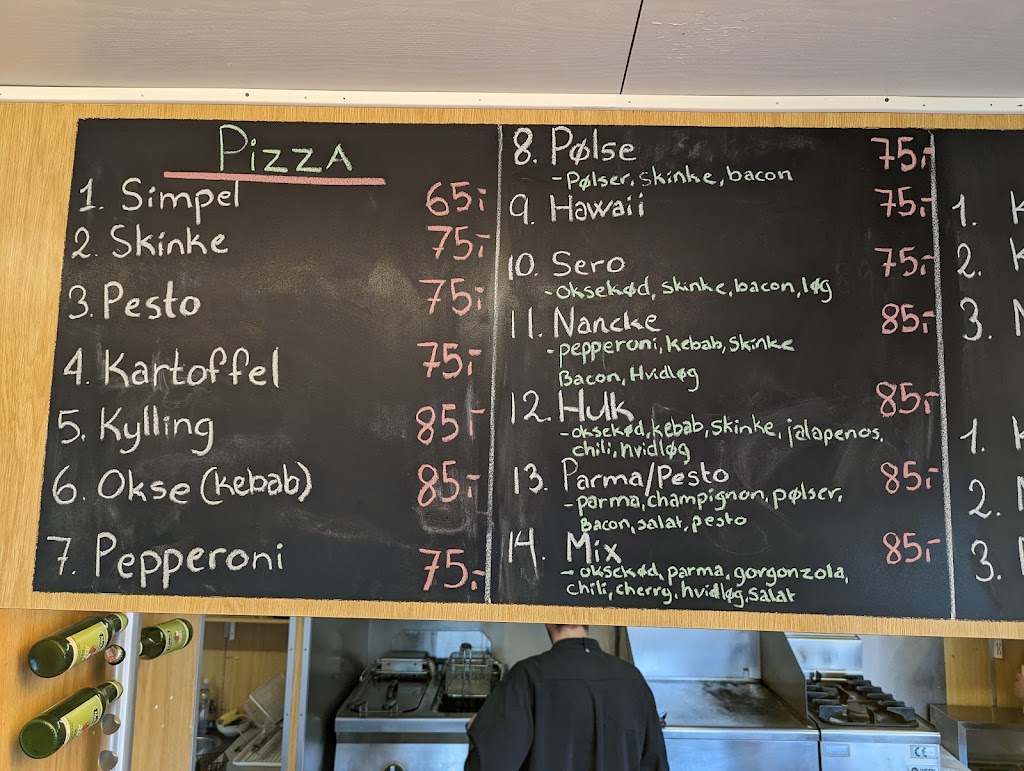 Pizza
1. Simpel 65,-
2. Skinke 75,-
3. Pesto 75,-
4. Kartoffel 75,-
5. Kylling 85,-
6. Okse (kebab) 85,-
7. Pepperoni 75,-
8. Pølse 75,-
- Pølser, skinke, bacon
9. Hawaii 75,-
10. Sero 75,-
- oksekød, skinke, bacon, løg
11. Nancke 85,-
- pepperoni, kebab, skinke
Bacon, Hvidløg
12. Hulk 85,-
- oksekød, kebab, skinke, jalapenos,
chili, hvidløg
13. Parma/Pesto 85,-
- parma, champignon, pølser,
Bacon, salat, pesto
14. Mix 85,-
- oksekød, parma, gorgonzola,
chili, cherry, hvidløg, salat
1.
2.
3.
1.
2.
3.
CE